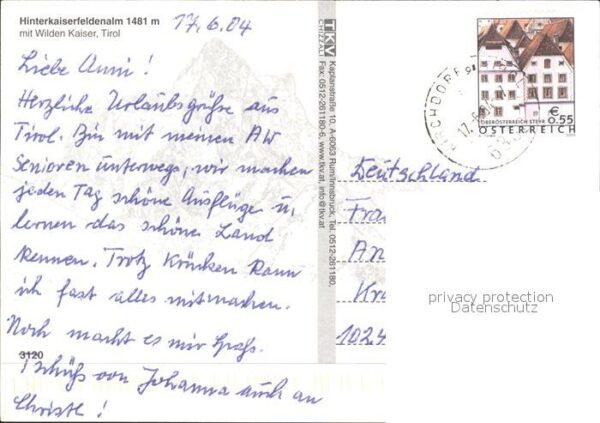 Hinterkaiserfeldenalm 1481 m
mit Wilden Kaiser, Tirol
17.6.04
Liebe Anni!
Herzliche Urlaubsgrüße aus
Tirol. Bin mit meinen AW
Senioren unterwegs, wir machen
jeden Tag schöne Ausflüge u,
lernen das schöne Land
kennen. Trotz Krücken kann
ich fast alles mitmachen.
Noch macht es mir Spaß.
3120
Tschüß von Johanna auch an
Christl!
TKV
CHIZZALI
Kaplanstraße 10, A-6063 Rum/Innsbruck, Tel. 0512-261180,
Fax: 0512-261180-6, www.tkv.at, info@tkv.at
€ 0.55
OBERÖSTERREICH STEYR
ÖSTERREICH
Deutschland
Fra
An
Kr
1024
privacy protection
Datenschutz